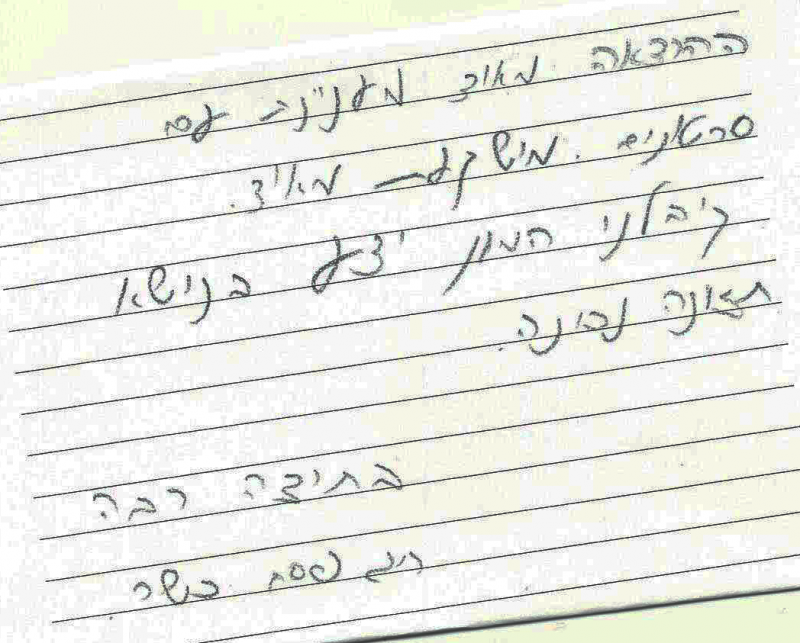 ההרצאה מאוד מענינת עם
סרטונים. מושקעת מאוד.
קיבלנו המון ידע בנושא
תזונה נכונה.
בתודה רבה
חג פסח כשר